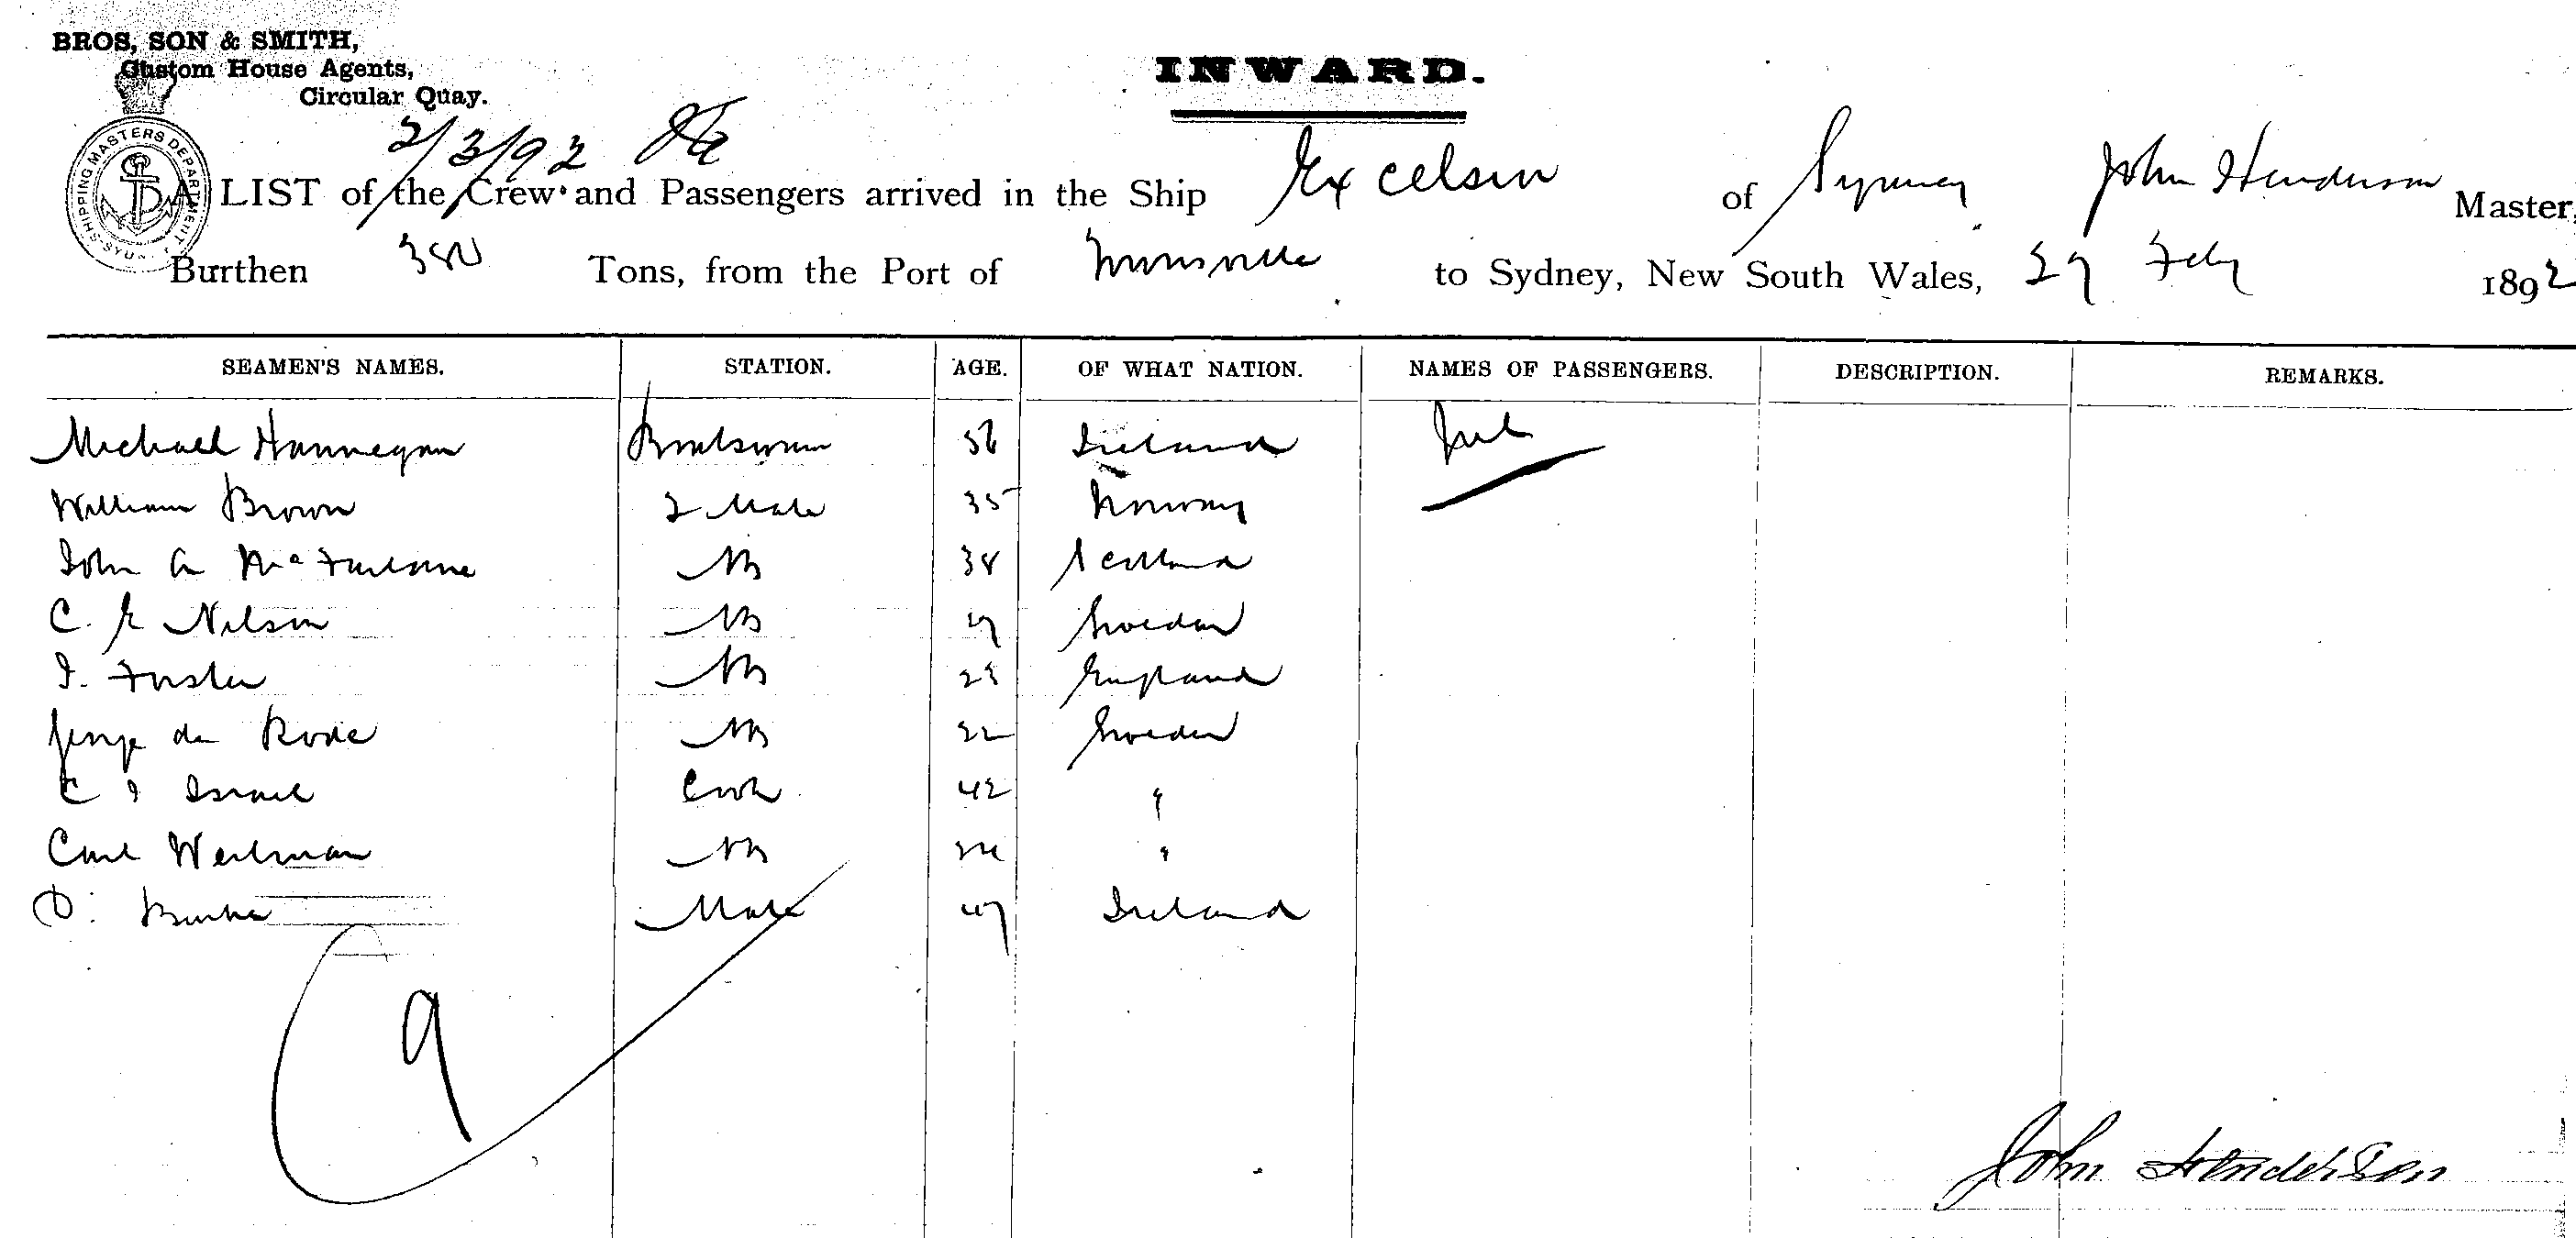 BROS, SON & SMITH,
Custom House Agents,
Circular Quay.
INWARD.
SHIPPING MASTERS DEPARTMENT
2/3/92
A LIST of the Crew and Passengers arrived in the Ship Excelsior of Sydney John Henderson Master,
Burthen Tons, from the Port of to Sydney, New South Wales, 29 Feby 1892
SEAMEN'S NAMES. STATION. AGE. OF WHAT NATION. NAMES OF PASSENGERS. DESCRIPTION. REMARKS.
Michael Hannegan Boatswain 56 Ireland
William Brown 2 Mate 35 Norway
John A McFarlane AB 38 Scotland
C. E Nilson AB Sweden
Foster AB England
de Rode AB 22 Sweden
C Israel Cook 42 "
Carl AB "
D. Burke Mate 47 Ireland
9
John Henderson